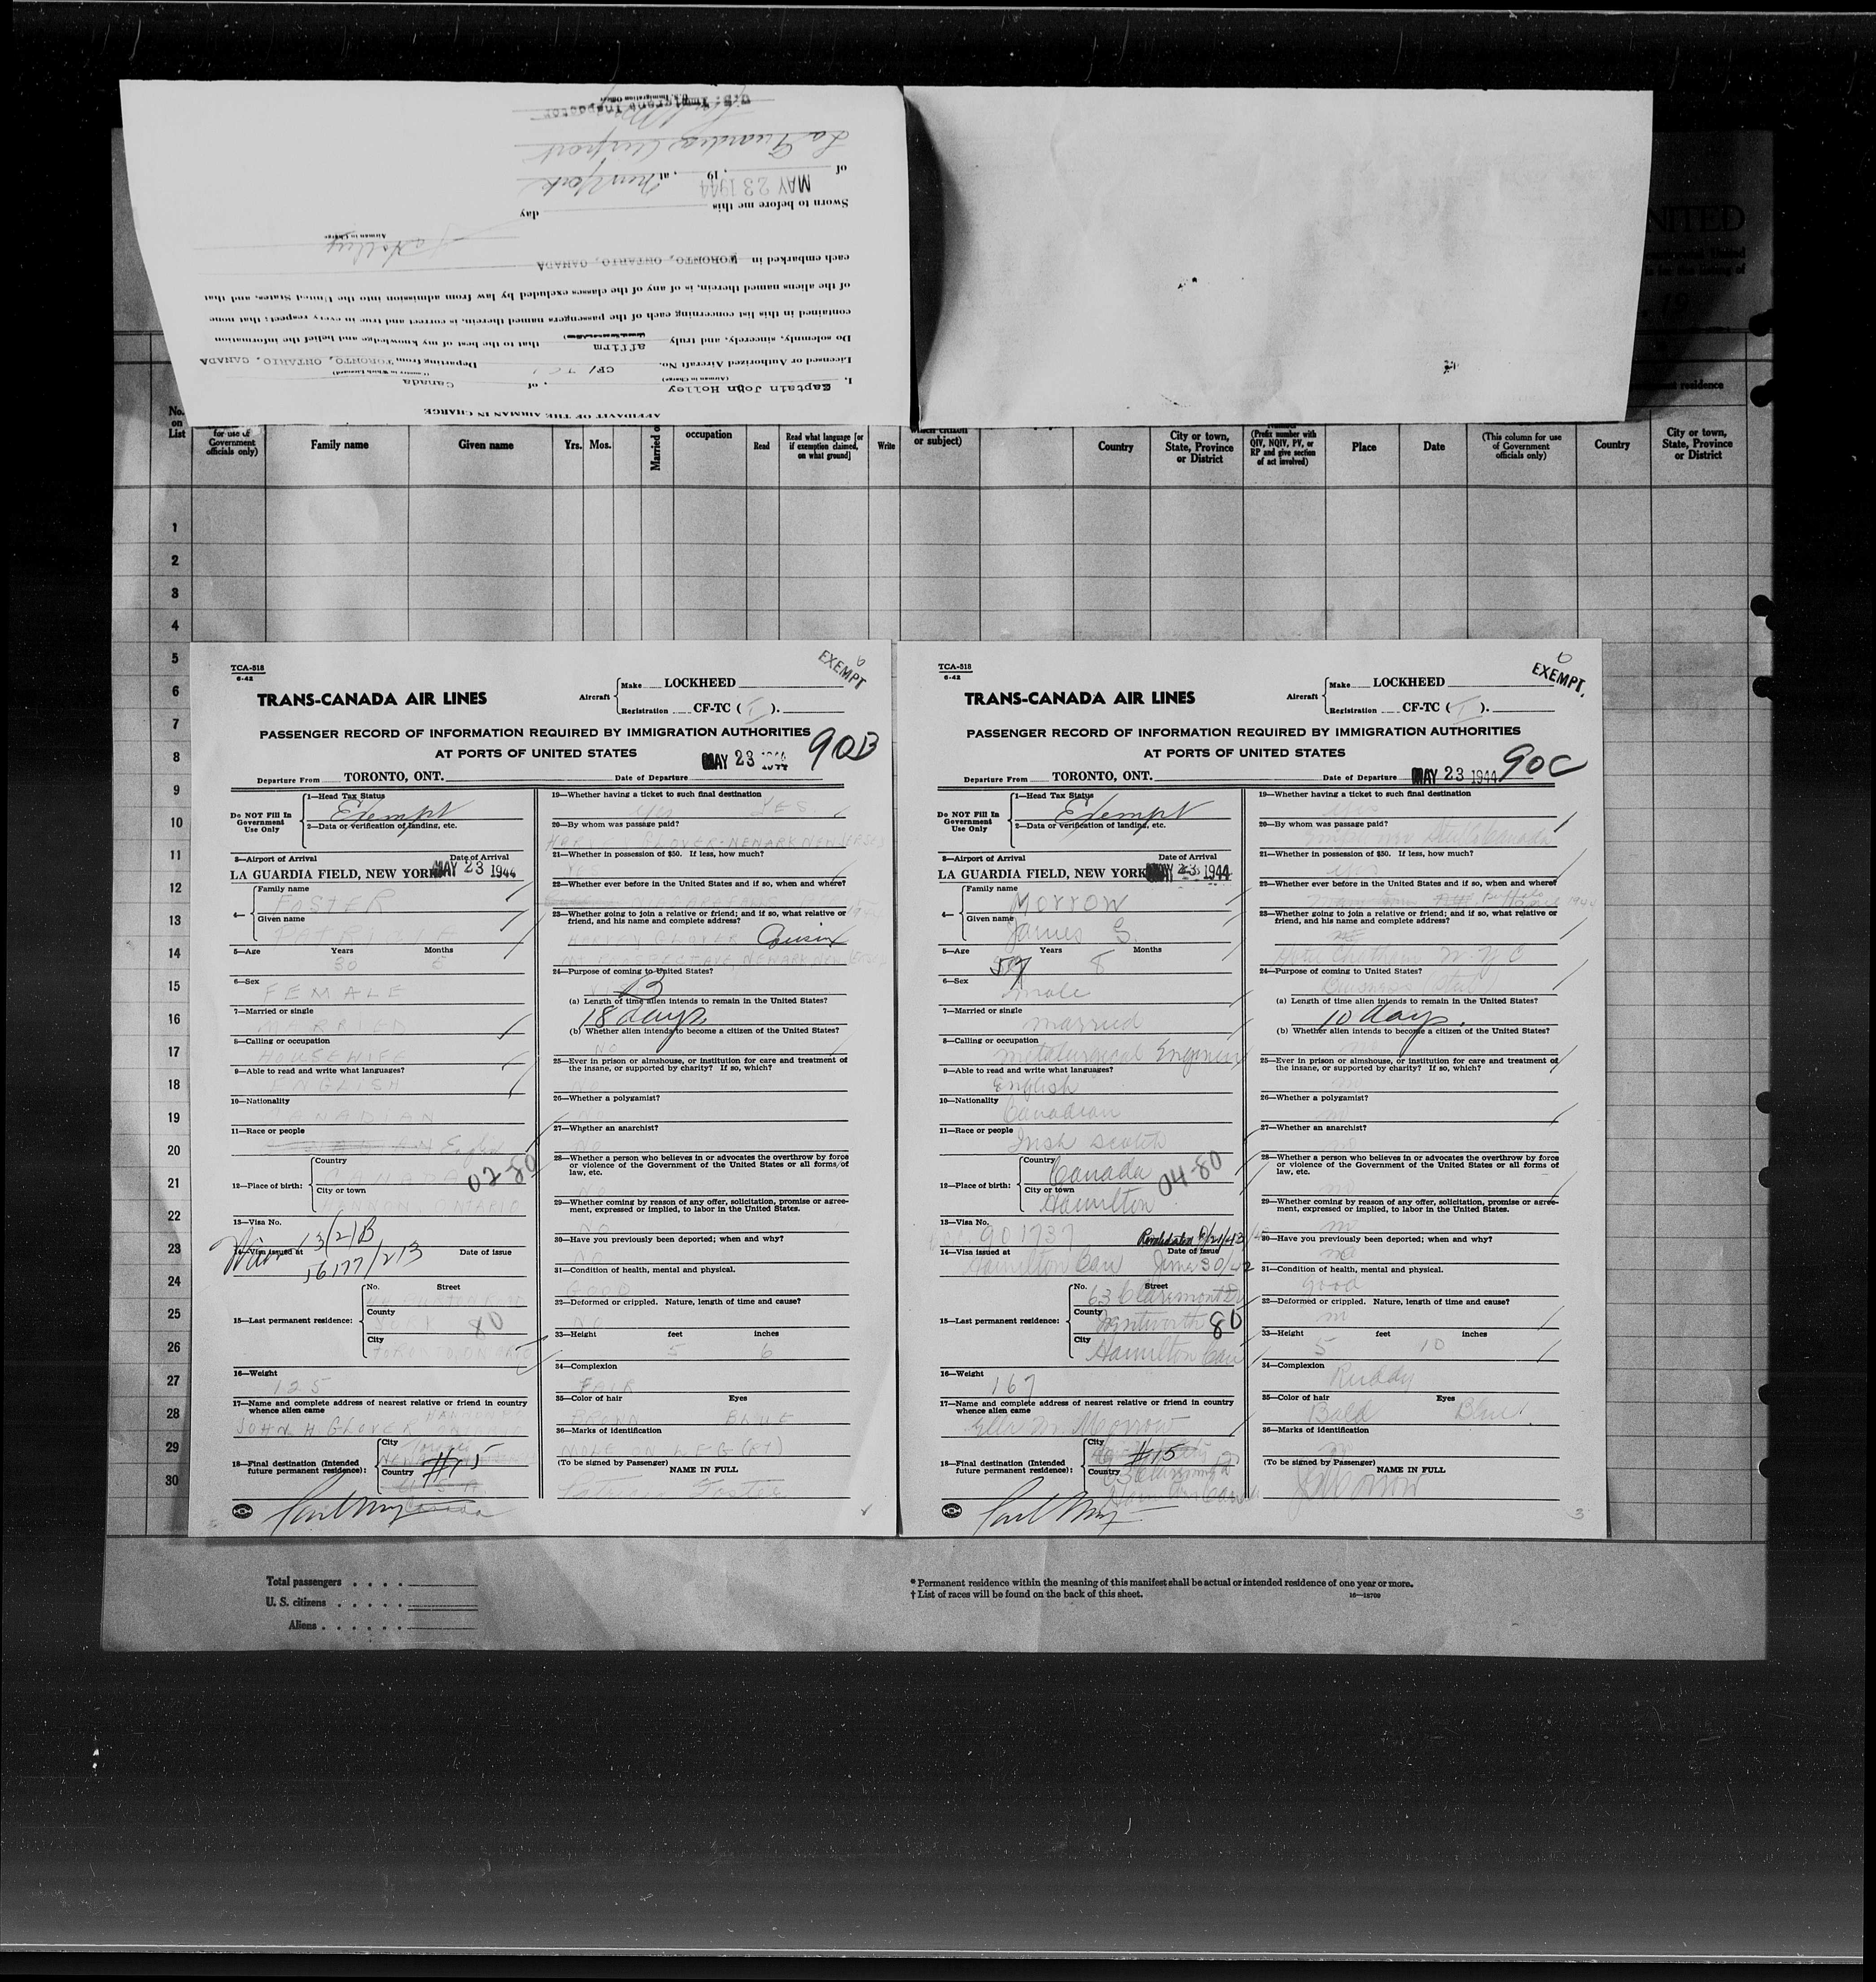 AFFIDAVIT OF THE AIRMAN IN CHARGE
I, Captain John Holley, of Canada
(Airman in Charge) (Country in Which Licensed)
Licensed or Authorized Aircraft No. CF/TCI Departing from TORONTO, ONTARIO, CANADA
Do solemnly, sincerely, and truly affirm that to the best of my knowledge and belief the information
contained in this list concerning each of the passengers named therein, is correct and true in every respect; that none
of the aliens named therein, is of any of the classes excluded by law from admission into the United States, and that
each embarked in TORONTO, ONTARIO, CANADA
Holley
Airman in Charge
Sworn to before me this day
of MAY 23 1944, 19 , at New York
La Guardia Airport
U.S. Immigrant Inspector
NITED
residence
No. on List
for use of Government officials only)
Family name
Given name
Yrs. Mos.
Married o
occupation
Read
Read what language [or if exemption claimed, on what ground]
Write
which citizen or subject)
Country
City or town, State, Province or District
(Prefix number with QIV, NQIV, PV, or RP and give section of act involved)
Place
Date
(This column for use of Government officials only)
Country
City or town, State, Province or District
1
2
3
4
5
6
7
8
9
10
11
12
13
14
15
16
17
18
19
20
21
22
23
24
25
26
27
28
29
30
TCA-518
6-42
EXEMPT
TRANS-CANADA AIR LINES
Aircraft Make LOCKHEED
Registration CF-TC ( I ).
PASSENGER RECORD OF INFORMATION REQUIRED BY IMMIGRATION AUTHORITIES
AT PORTS OF UNITED STATES
MAY 23 1944
90B
Departure From TORONTO, ONT. Date of Departure
Do NOT Fill In Government Use Only
1—Head Tax Status
Exempt
2—Data or verification of landing, etc.
3—Airport of Arrival Date of Arrival
LA GUARDIA FIELD, NEW YORK MAY 23 1944
4— Family name
FOSTER
Given name
5—Age Years Months
30
6—Sex
FEMALE
7—Married or single
MARRIED
8—Calling or occupation
HOUSEWIFE
9—Able to read and write what languages?
ENGLISH
10—Nationality
CANADIAN
11—Race or people
12—Place of birth: Country
CANADA
02-80
City or town
ONTARIO
13—Visa No.
13(2)B
14—Visa issued at Date of issue
56177/213
15—Last permanent residence: No. Street
County
80
City
TORONTO, ONTARIO
16—Weight
125
17—Name and complete address of nearest relative or friend in country whence alien came
JOHN H GLOVER
18—Final destination (Intended future permanent residence): City
#15
Country
Canada
19—Whether having a ticket to such final destination
YES
20—By whom was passage paid?
GLOVER-NEWARK NEW JERSEY
21—Whether in possession of $50. If less, how much?
22—Whether ever before in the United States and if so, when and where?
23—Whether going to join a relative or friend; and if so, what relative or friend, and his name and complete address?
GLOVER Cousin
PROSPECT AVE, NEWARK NEW JERSEY
24—Purpose of coming to United States?
B
(a) Length of time alien intends to remain in the United States?
18 days
(b) Whether alien intends to become a citizen of the United States?
NO
25—Ever in prison or almshouse, or institution for care and treatment of the insane, or supported by charity? If so, which?
NO
26—Whether a polygamist?
NO
27—Whether an anarchist?
NO
28—Whether a person who believes in or advocates the overthrow by force or violence of the Government of the United States or all forms of law, etc.
NO
29—Whether coming by reason of any offer, solicitation, promise or agreement, expressed or implied, to labor in the United States.
NO
30—Have you previously been deported; when and why?
NO
31—Condition of health, mental and physical.
GOOD
32—Deformed or crippled. Nature, length of time and cause?
NO
33—Height feet inches
5 6
34—Complexion
FAIR
35—Color of hair Eyes
BROWN BLUE
36—Marks of identification
MOLE ON LEG (RT)
(To be signed by Passenger)
NAME IN FULL
Patricia Foster
TCA-518
6-42
EXEMPT
TRANS-CANADA AIR LINES
Aircraft Make LOCKHEED
Registration CF-TC ( I ).
PASSENGER RECORD OF INFORMATION REQUIRED BY IMMIGRATION AUTHORITIES
AT PORTS OF UNITED STATES
90C
Departure From TORONTO, ONT. Date of Departure MAY 23 1944
Do NOT Fill In Government Use Only
1—Head Tax Status
Exempt
2—Data or verification of landing, etc.
3—Airport of Arrival Date of Arrival
LA GUARDIA FIELD, NEW YORK MAY 23 1944
4— Family name
Morrow
Given name
James G
5—Age Years Months
57 8
6—Sex
male
7—Married or single
married
8—Calling or occupation
Metalurgical Engineer
9—Able to read and write what languages?
English
10—Nationality
Canadian
11—Race or people
Irish Scotch
12—Place of birth: Country
Canada
04-80
City or town
Hamilton
13—Visa No.
901737
14—Visa issued at Date of Issue
Hamilton Can June 30/42
15—Last permanent residence: No. Street
63 Claremont Dr
County
Wentworth 80
City
Hamilton Can
16—Weight
167
17—Name and complete address of nearest relative or friend in country whence alien came
Morrow
18—Final destination (Intended future permanent residence): City
#15
Country
63 Claremont Dr
Hamilton Can
19—Whether having a ticket to such final destination
yes
20—By whom was passage paid?
21—Whether in possession of $50. If less, how much?
yes
22—Whether ever before in the United States and if so, when and where?
23—Whether going to join a relative or friend; and if so, what relative or friend, and his name and complete address?
no
Hotel Chatham N.Y.C
24—Purpose of coming to United States?
Business
(a) Length of time alien intends to remain in the United States?
10 days.
(b) Whether alien intends to become a citizen of the United States?
no
25—Ever in prison or almshouse, or institution for care and treatment of the insane, or supported by charity? If so, which?
no
26—Whether a polygamist?
no
27—Whether an anarchist?
no
28—Whether a person who believes in or advocates the overthrow by force or violence of the Government of the United States or all forms of law, etc.
no
29—Whether coming by reason of any offer, solicitation, promise or agreement, expressed or implied, to labor in the United States.
no
30—Have you previously been deported; when and why?
no
31—Condition of health, mental and physical.
good
32—Deformed or crippled. Nature, length of time and cause?
no
33—Height feet inches
5 10
34—Complexion
Ruddy
35—Color of hair Eyes
Bald Blue
36—Marks of identification
no
(To be signed by Passenger)
NAME IN FULL
J G Morrow
3
Total passengers . . . .
U. S. citizens . . . . .
Aliens . . . . . .
* Permanent residence within the meaning of this manifest shall be actual or intended residence of one year or more.
† List of races will be found on the back of this sheet.
16—18709